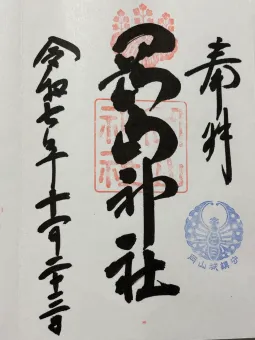 奉拝
岡山神社
令和七年十一月二十三日
岡山神社
岡山城鎮守